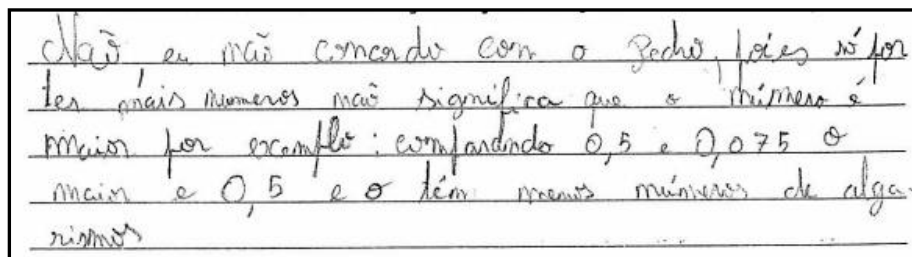 Não eu não concordo com o Pedro, poies só por
ter mais numeros não significa que o número é
maior por exemplo: comparando 0,5 e 0,075 o
maior e 0,5 e o tém menos números de alga-
rismos